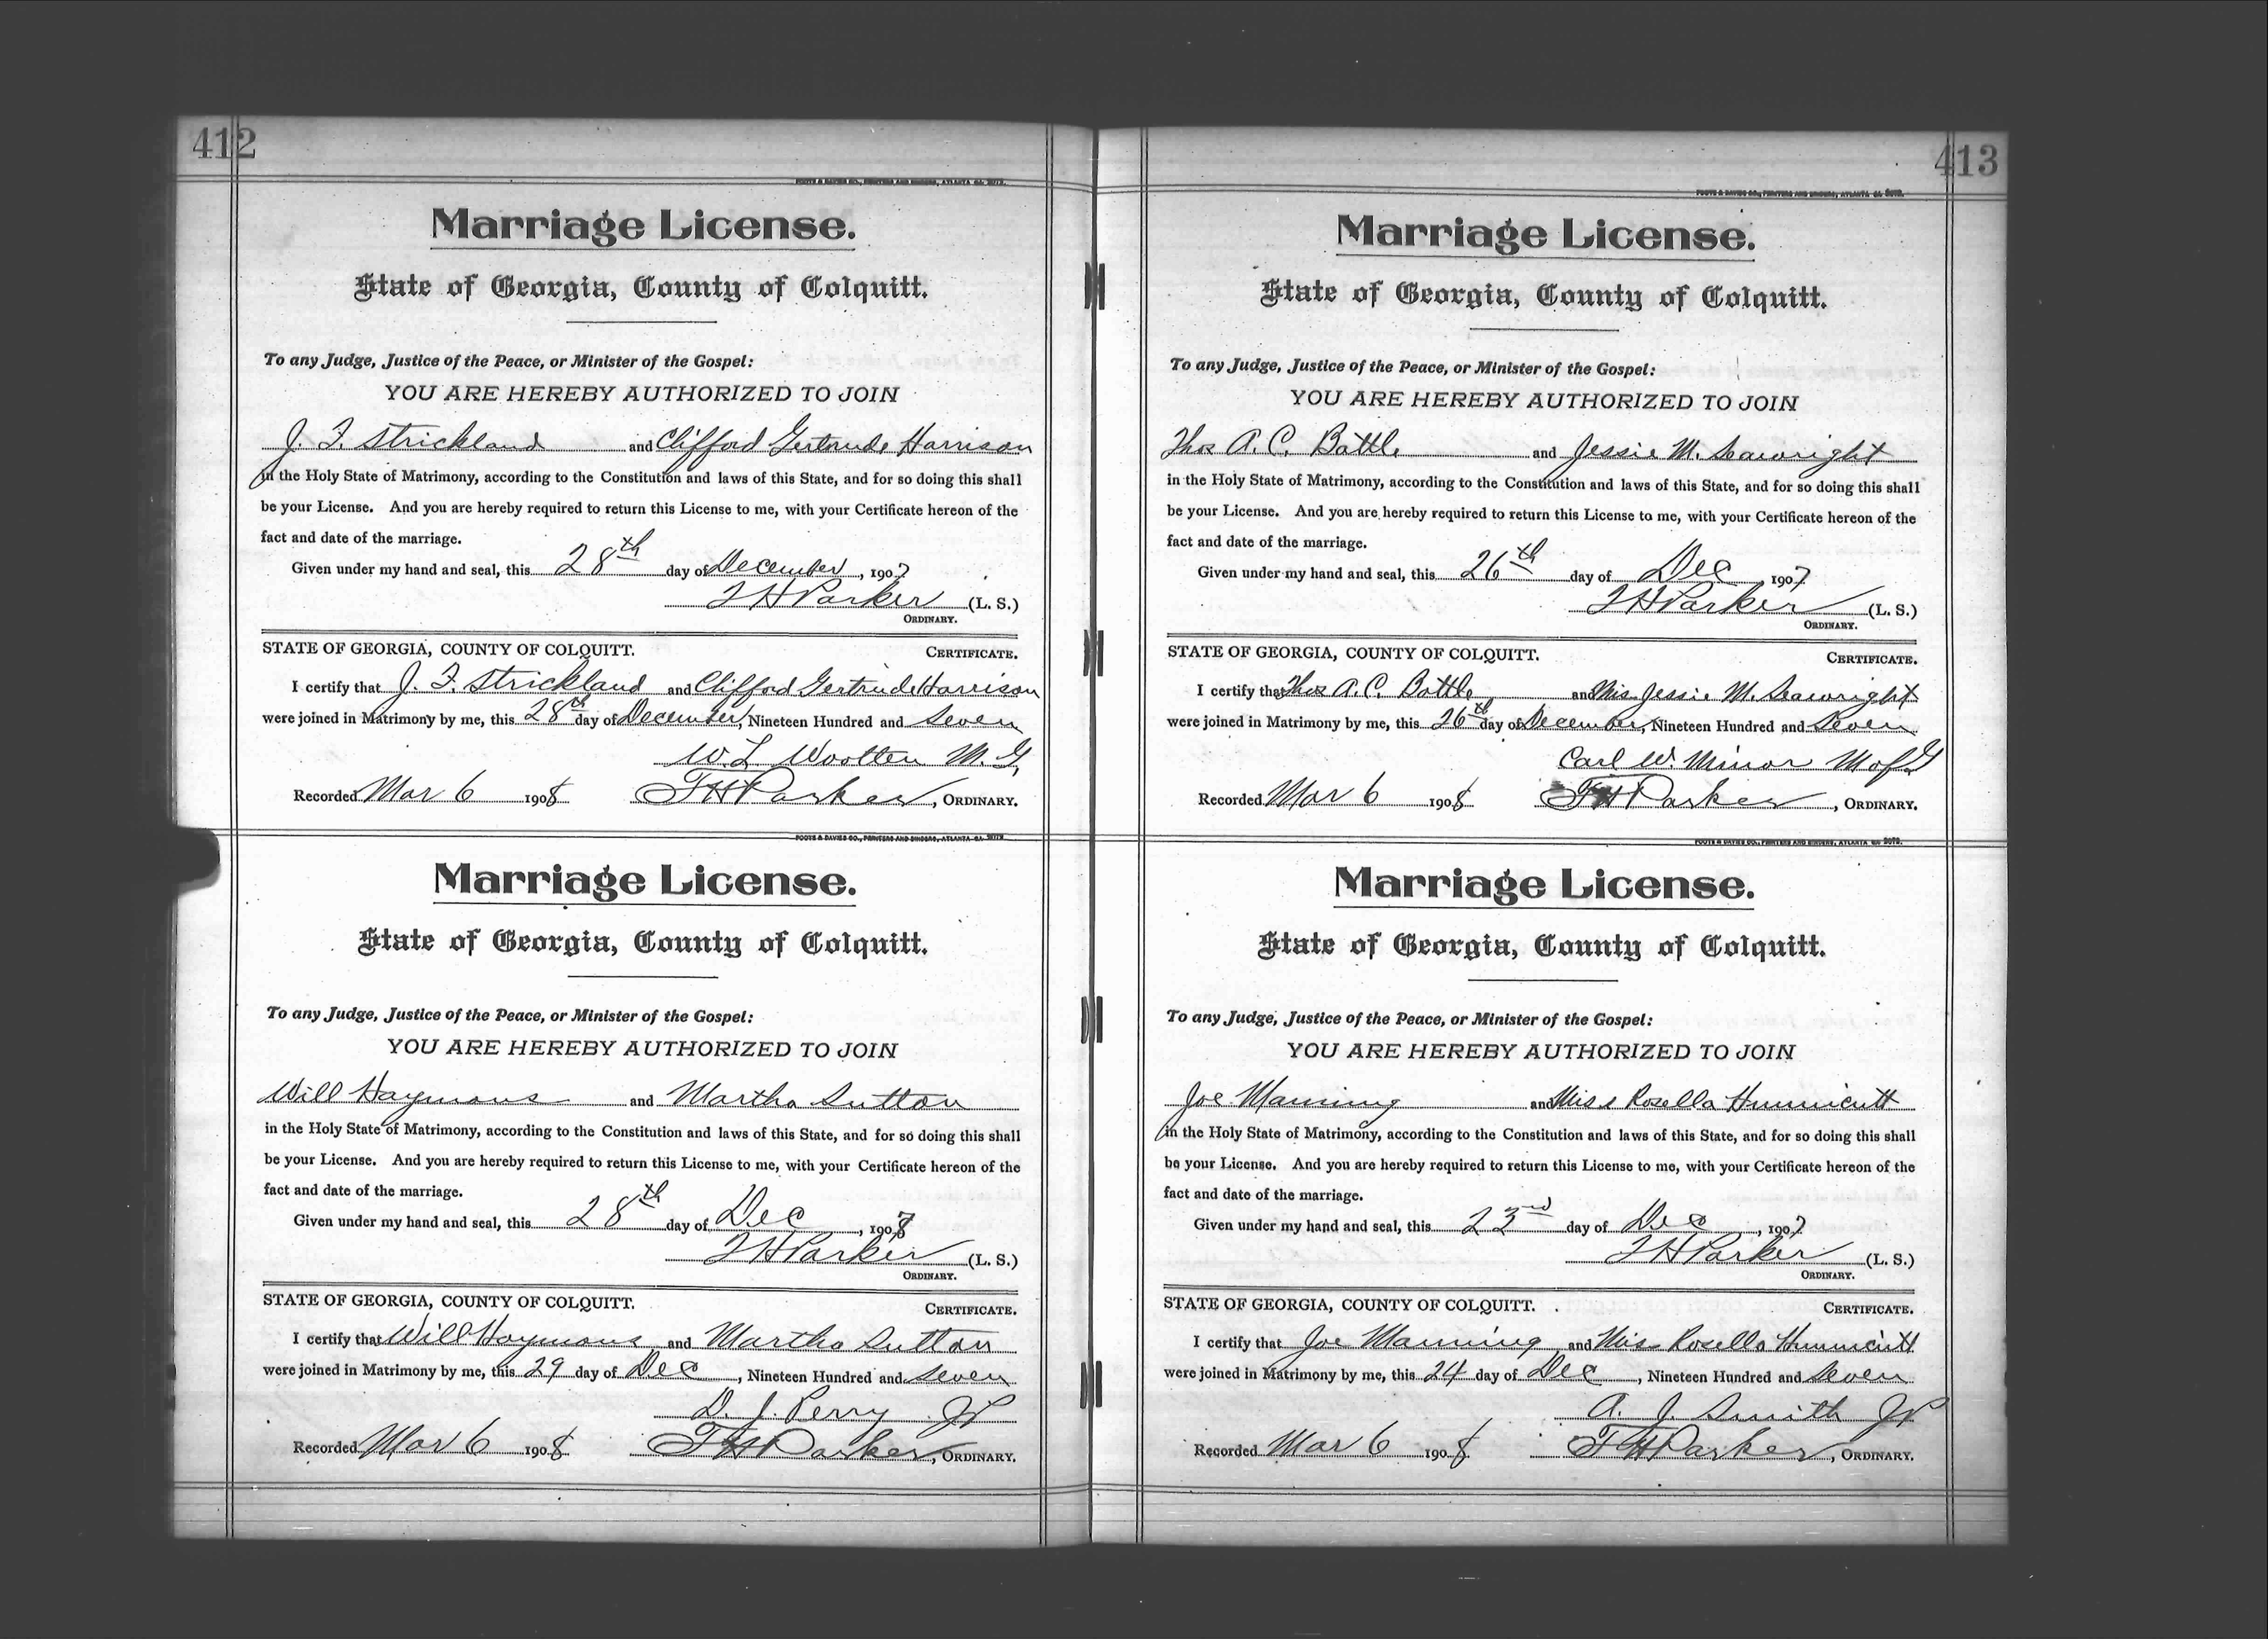 412
FOOTE & DAVIES CO., PRINTERS AND BINDERS, ATLANTA GA.
Marriage License.
State of Georgia, County of Colquitt.
To any Judge, Justice of the Peace, or Minister of the Gospel:
YOU ARE HEREBY AUTHORIZED TO JOIN
J. F. Strickland and Clifford Gertrude Harrison
in the Holy State of Matrimony, according to the Constitution and laws of this State, and for so doing this shall
be your License. And you are hereby required to return this License to me, with your Certificate hereon of the
fact and date of the marriage.
Given under my hand and seal, this 28th day of December, 1907
T H Parker (L. S.)
ORDINARY.
STATE OF GEORGIA, COUNTY OF COLQUITT. CERTIFICATE.
I certify that J. F. Strickland and Clifford Gertrude Harrison
were joined in Matrimony by me, this 28th day of December, Nineteen Hundred and Seven
W. L. Wootten M. G.
Recorded Mar 6 1908 T H Parker, ORDINARY.
FOOTE & DAVIES CO., PRINTERS AND BINDERS, ATLANTA GA.
Marriage License.
State of Georgia, County of Colquitt.
To any Judge, Justice of the Peace, or Minister of the Gospel:
YOU ARE HEREBY AUTHORIZED TO JOIN
Will Haymans and Martha Sutton
in the Holy State of Matrimony, according to the Constitution and laws of this State, and for so doing this shall
be your License. And you are hereby required to return this License to me, with your Certificate hereon of the
fact and date of the marriage.
Given under my hand and seal, this 28th day of Dec, 1907
T H Parker (L. S.)
ORDINARY.
STATE OF GEORGIA, COUNTY OF COLQUITT. CERTIFICATE.
I certify that Will Haymans and Martha Sutton
were joined in Matrimony by me, this 29 day of Dec, Nineteen Hundred and Seven
D. J. Perry JP
Recorded Mar 6 1908 T H Parker, ORDINARY.
413
FOOTE & DAVIES CO., PRINTERS AND BINDERS, ATLANTA GA.
Marriage License.
State of Georgia, County of Colquitt.
To any Judge, Justice of the Peace, or Minister of the Gospel:
YOU ARE HEREBY AUTHORIZED TO JOIN
Thos A. C. Battle and Jessie M. Seawright
in the Holy State of Matrimony, according to the Constitution and laws of this State, and for so doing this shall
be your License. And you are hereby required to return this License to me, with your Certificate hereon of the
fact and date of the marriage.
Given under my hand and seal, this 26th day of Dec, 1907
T H Parker (L. S.)
ORDINARY.
STATE OF GEORGIA, COUNTY OF COLQUITT. CERTIFICATE.
I certify that Thos A. C. Battle and Miss Jessie M. Seawright
were joined in Matrimony by me, this 26th day of December, Nineteen Hundred and Seven
Carl W. Minor M of G
Recorded Mar 6 1908 T H Parker, ORDINARY.
FOOTE & DAVIES CO., PRINTERS AND BINDERS, ATLANTA GA.
Marriage License.
State of Georgia, County of Colquitt.
To any Judge, Justice of the Peace, or Minister of the Gospel:
YOU ARE HEREBY AUTHORIZED TO JOIN
Joe Manning and Miss Rosella Hunnicutt
in the Holy State of Matrimony, according to the Constitution and laws of this State, and for so doing this shall
be your License. And you are hereby required to return this License to me, with your Certificate hereon of the
fact and date of the marriage.
Given under my hand and seal, this 23rd day of Dec, 1907
T H Parker (L. S.)
ORDINARY.
STATE OF GEORGIA, COUNTY OF COLQUITT. CERTIFICATE.
I certify that Joe Manning and Miss Rosella Hunnicutt
were joined in Matrimony by me, this 24 day of Dec, Nineteen Hundred and Seven
A. J. Smith JP
Recorded Mar 6 1908 T H Parker, ORDINARY.